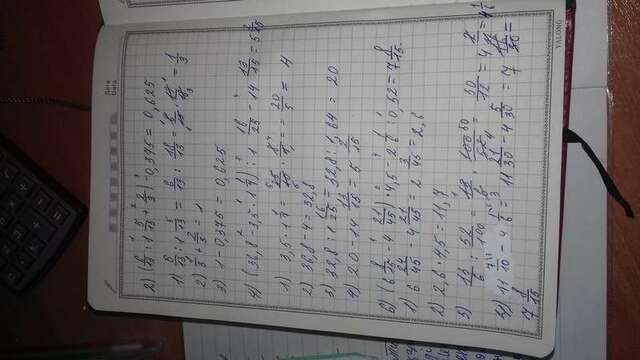 Дата
Data
2) (6/13 : 1 5/13 + 2/3) - 0,375 = 0,625
1) 6/13 : 1 5/13 = 6/13 : 18/13 = 6/13 · 13/18 = 1/3
2) 1/3 + 2/3 = 1
3) 1 - 0,375 = 0,625
4) (36,8 - 3,5 · 1 1/7) : 1 16/25 - 14 13/15 = 5 2/15
1) 3,5 · 1 1/7 = · 8/7 = 20/5 = 4
2) 36,8 - 4 = 32,8
3) 32,8 : 1 16/25 = 32,8 : 1,64 = 20
4) 20 - 14 13/15 = 5 2/15
6) (6 8/15 - 4 21/45) · 4,5 - 2 1/6 : 0,52 = 7 8/15
1) 6 24/45 - 4 21/45 = 2 3/45 = 2,6
2) 2,6 · 4,5 = 11,7
3) 13/6 : 52/100 = 13/6 · 100/52 = 50/12 = 4 2/12 = 4 1/6
4) 11 7/10 - 4 1/6 = 11 21/30 - 4 5/30 = 7 16/30 =
7 8/15
YALONG